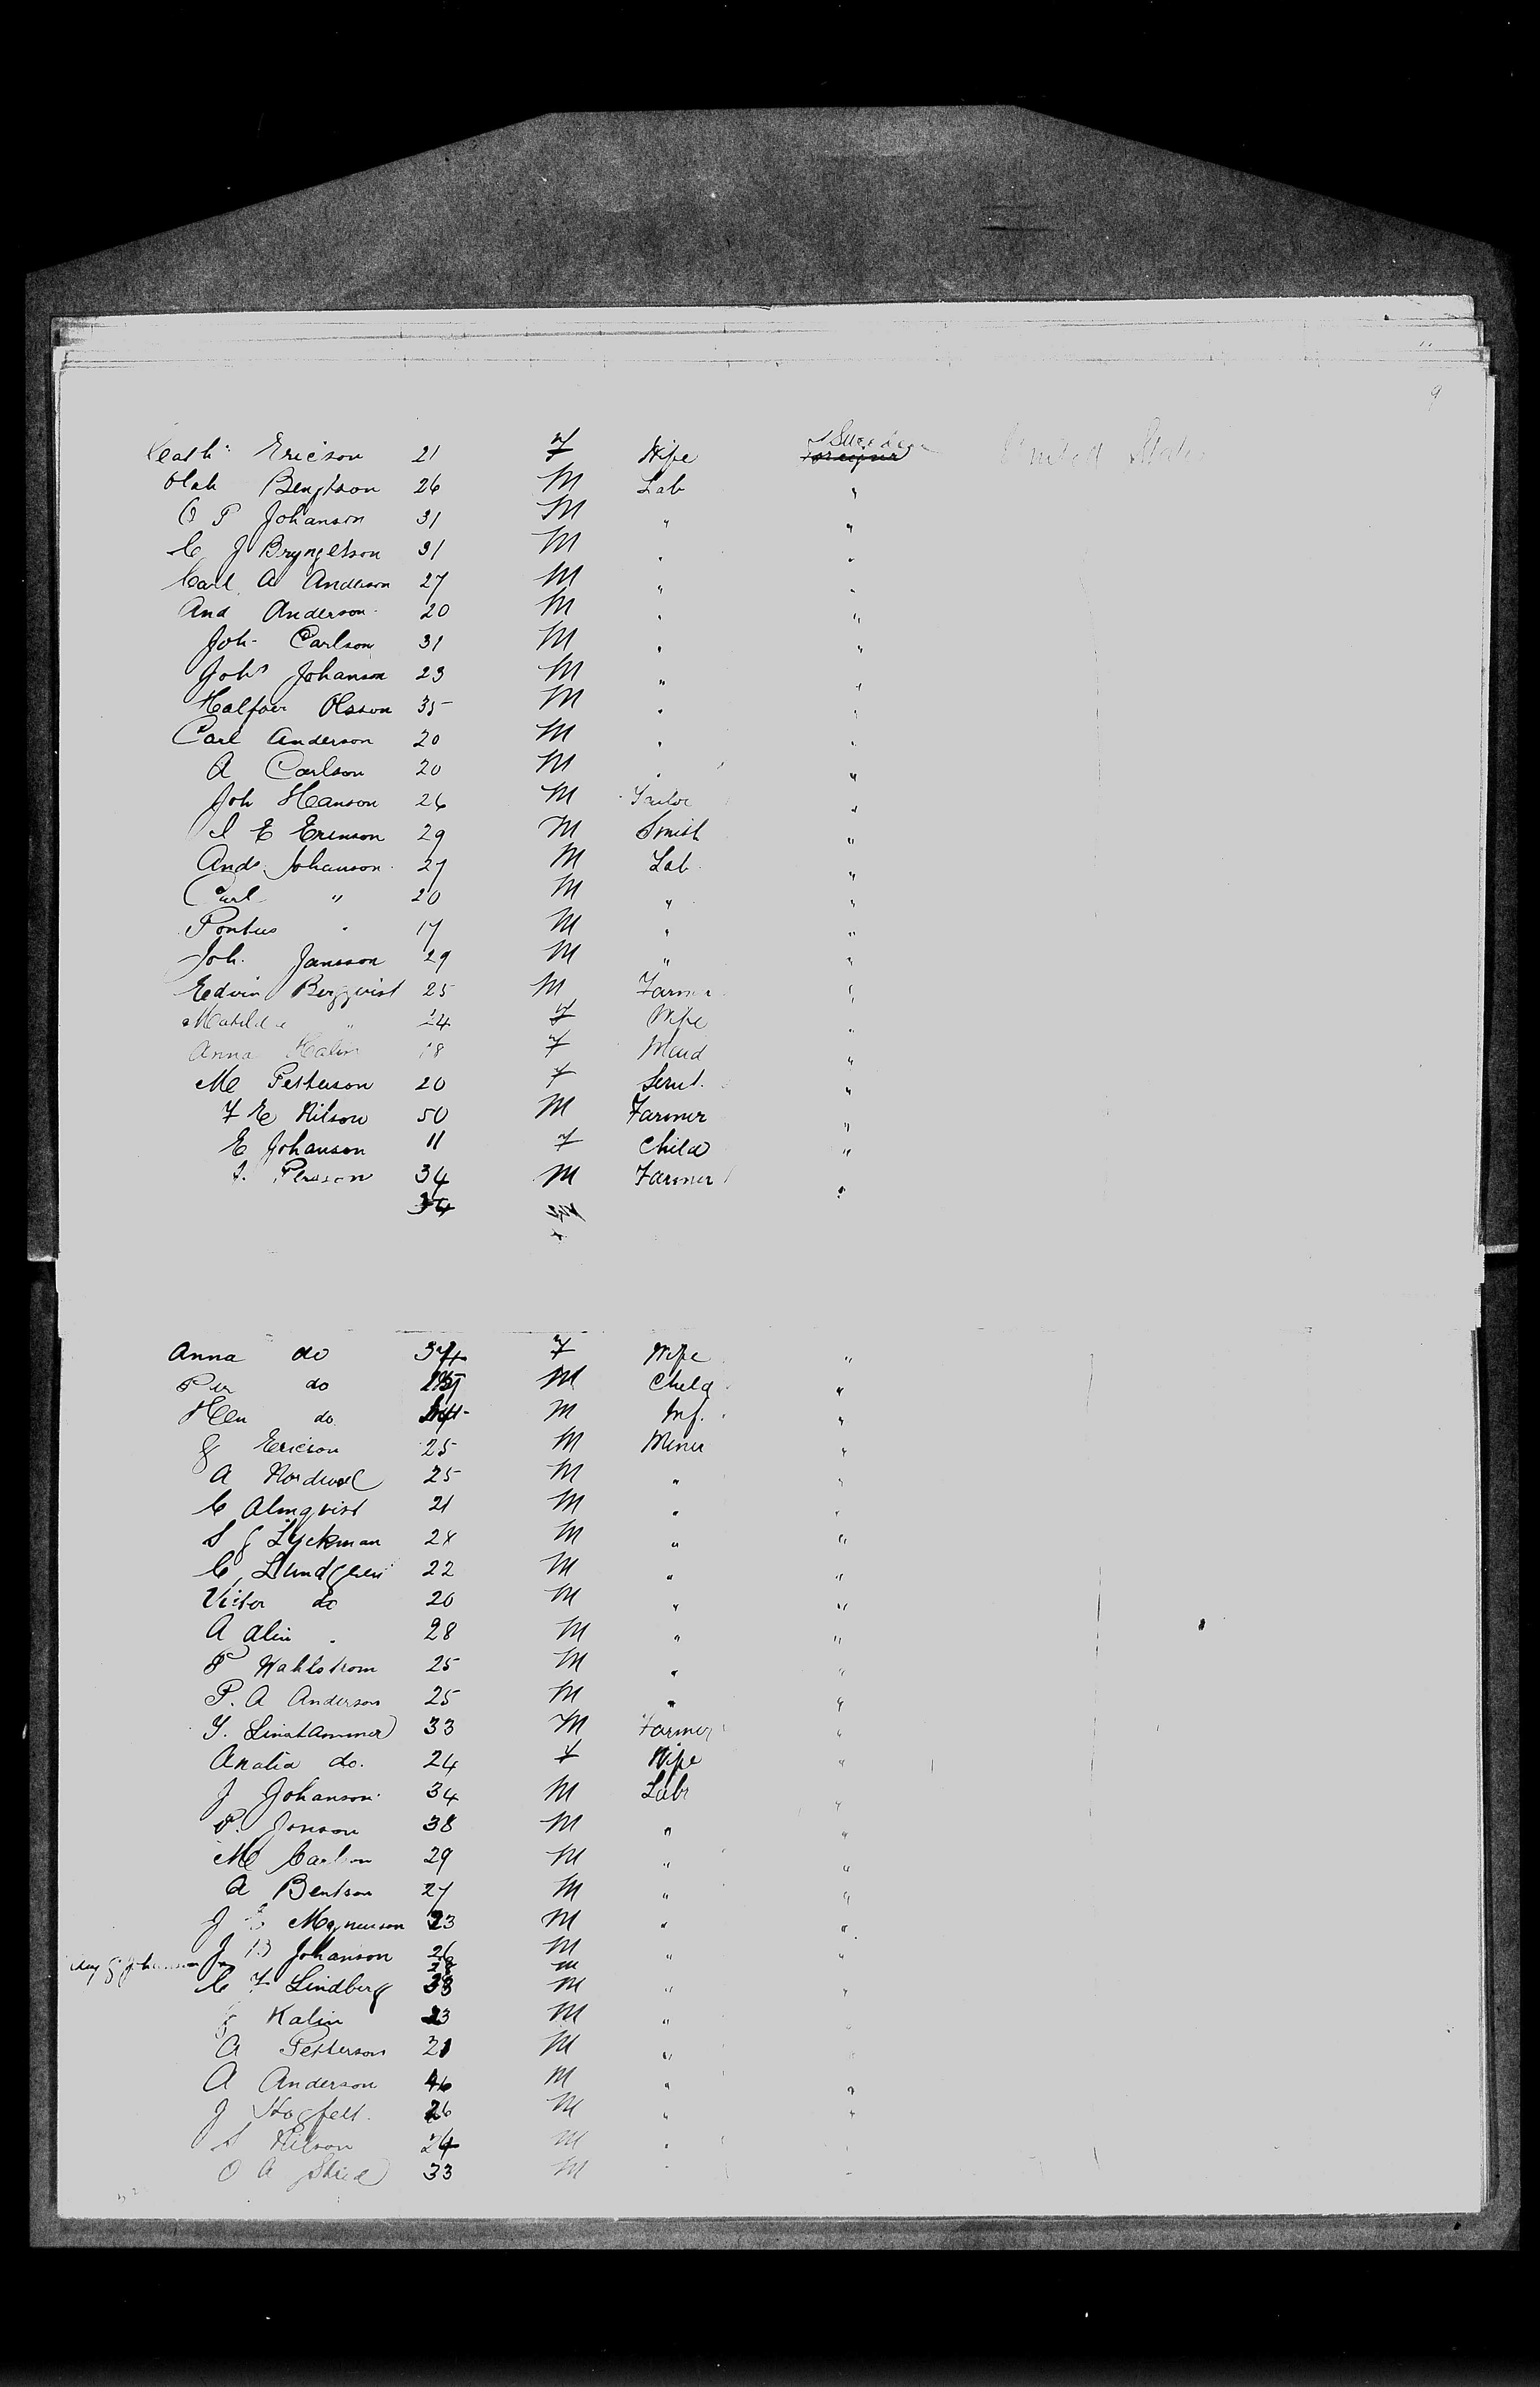 9
Cath Ericson 21 F Wife Sweden Foreigner United States
Olah Bengtson 26 M Lab "
O P Johanson 31 M " "
C J Bryngelson 31 M " "
Carl A Anderson 27 M " "
And Anderson 20 M " "
Joh Carlson 31 M " "
Johs Johanson 23 M " "
Halfver Olsson 35 M " "
Carl Anderson 20 M " "
A Carlson 20 M " "
Joh Hanson 26 M Tailor "
E Erenson 29 M Smith "
And Johanson 27 M Lab "
Carl " 20 M " "
Pontus " 17 M " "
Joh. Jansson 29 M " "
Edwin Bergqvist 25 M Farmer "
Matilda " 24 F Wife "
Anna Halin 18 F Maid "
M Petterson 20 F Servt. "
F E Nilson 50 M Farmer "
E Johanson 11 F Child "
Person 34 M Farmer "
34
Anna do F Wife "
Per do M Child "
Hen do M Inf. "
J Ericson 25 M Miner "
A Nordwal 25 M " "
C Almqvist 21 M " "
S J Lyckman 28 M " "
C Lundgren 22 M " "
Victor do 20 M " "
A Alin 28 M " "
P Wahlstrom 25 M " "
P. A Anderson 25 M " "
Y. Linshammer 33 M Farmer "
Analia do. 24 F Wife "
J Johanson 34 M Labr "
P. Jonson 38 M " "
M Carlson 29 M " "
A Bentson 27 M " "
J Magnuson 23 M " "
J B Johanson 26 M " "
Aug G Johanson 28 M
C F Lindberg 33 M " "
J Kalin 23 M "
A Petterson 21 M "
A Anderson 46 M " "
J Hogfelt 26 M " "
S Nilson 24 M "
O A Shied 33 M " "